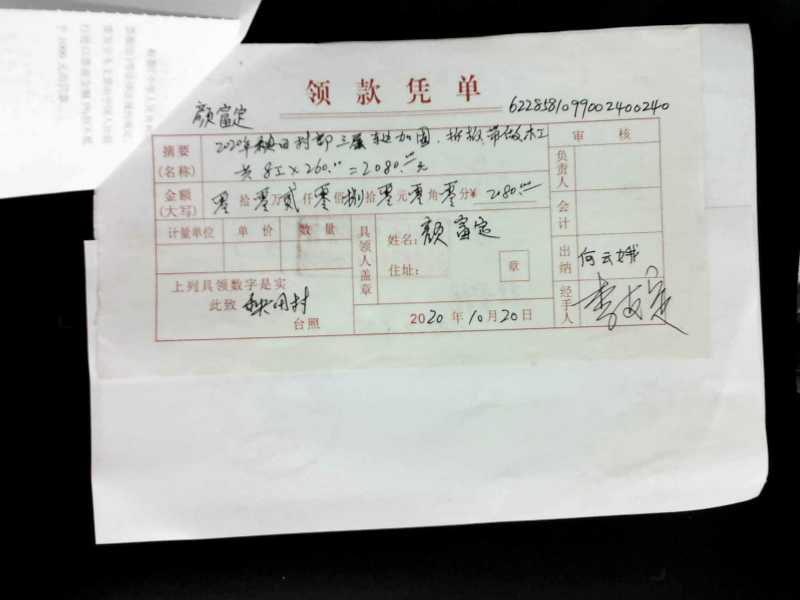 领款凭单
颜富定 6228581099002400240
摘要(名称) 2020年 田村部三层 加固.拆板等做木工
共 8工×260.00=2080.00元
审核
负责人
金额(大写) 零拾零万贰仟零佰捌拾零元零角零分¥ 2080.00
会计
计量单位 单价 数量
具领人盖章 姓名: 颜富定
住址: 章
出纳 何云娥
上列具领数字是实
此致 田村
台照
2020年10月20日
经手人